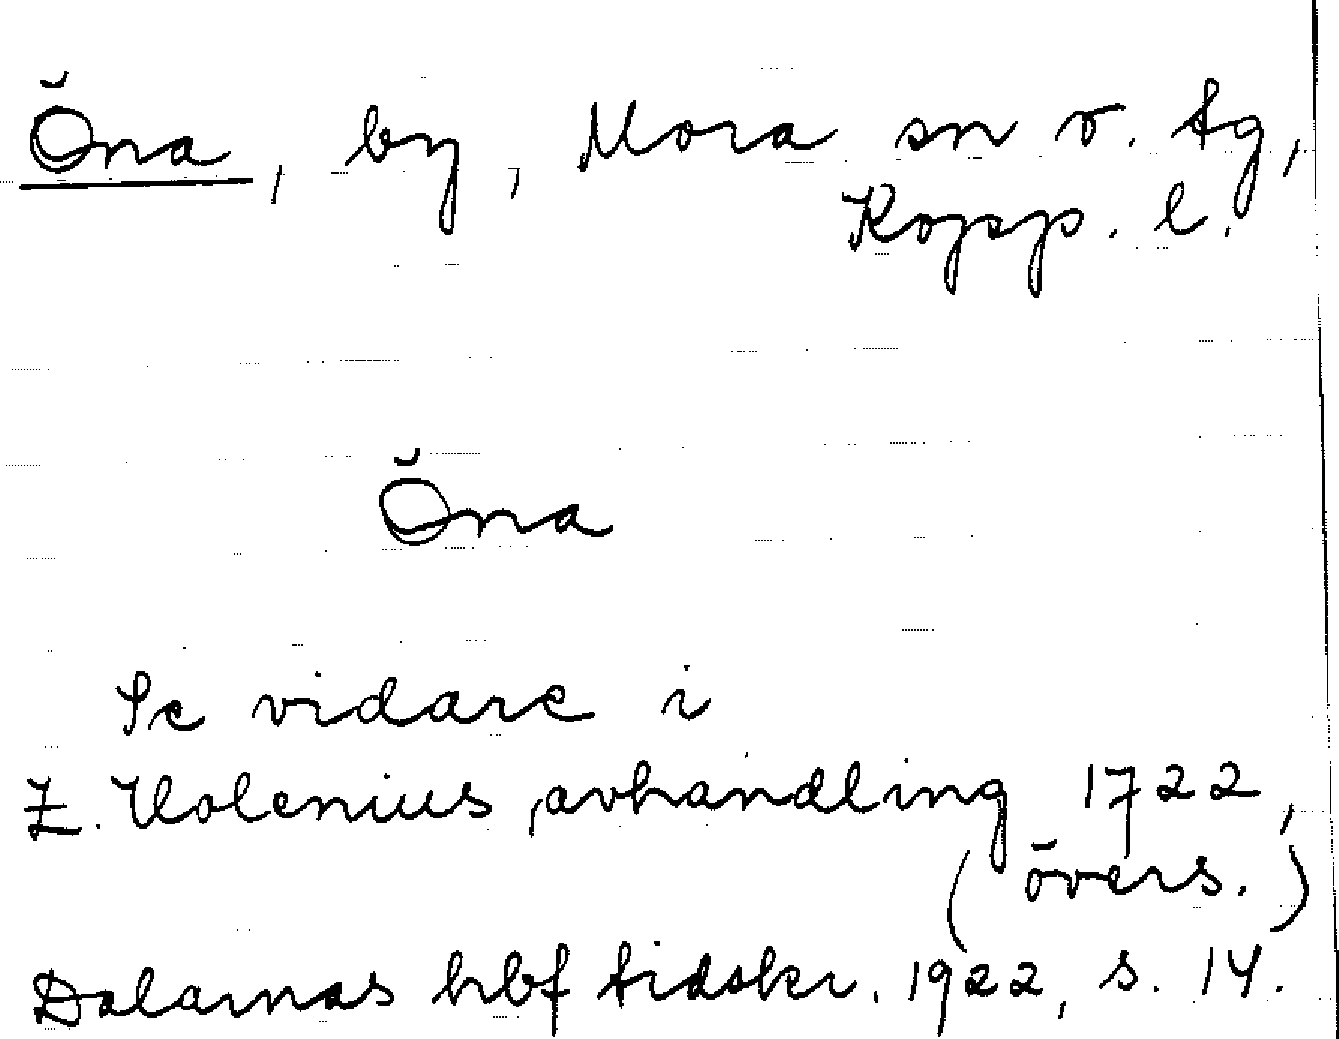 Öna, by, Mora sn o. tg,
Kopp. l.
Öna
Se vidare i
Z. Holenius, avhandling 1722,
(övers.)
Dalarnas hbf tidskr. 1922, s. 14.